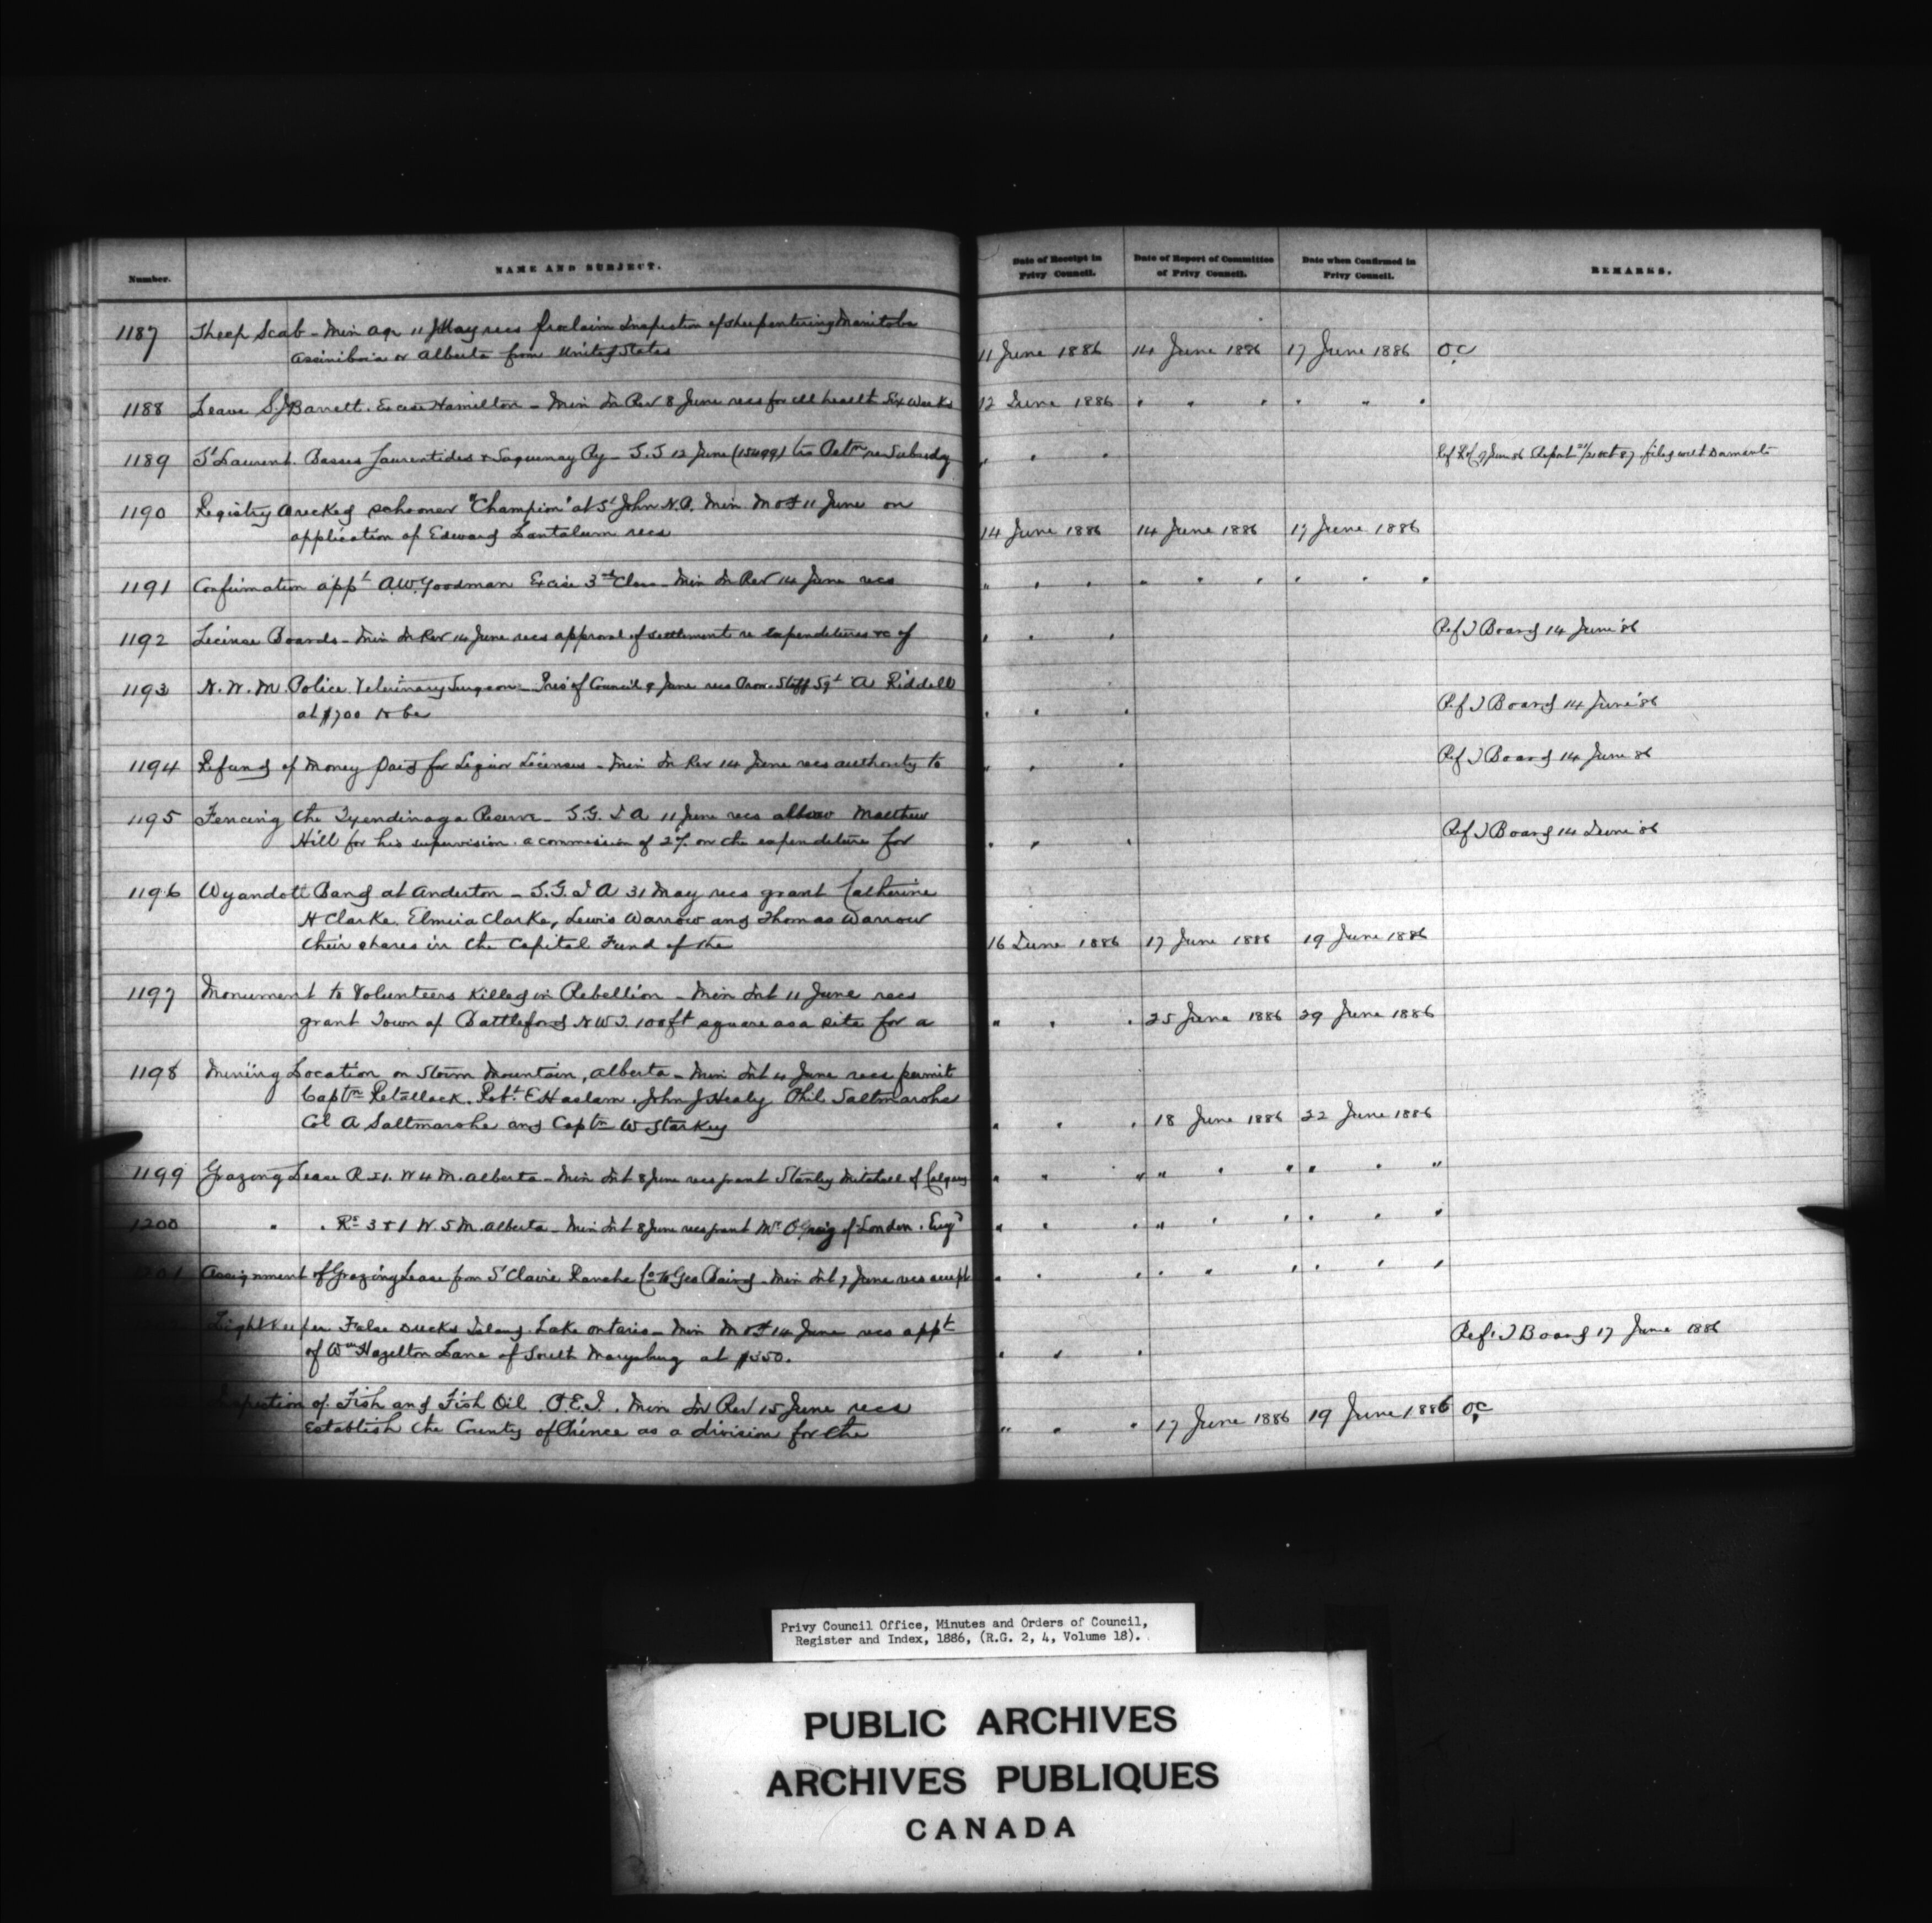 Number.
NAME AND SUBJECT.
Date of Receipt in Privy Council.
Date of Report of Committee of Privy Council.
Date when Confirmed in Privy Council.
REMARKS.
1187 Sheep Scab - Min Agr 11 May recs proclaim Inspection of sheep entering Manitoba
Assiniboia or Alberta from United States 11 June 1886 14 June 1886 17 June 1886 OC
1188 Leave S.J Barrett. Excise Hamilton - Min In Rev 8 June recs for ill health Six Weeks 12 June 1886 " " " " " "
1189 St Laurent. Basses Laurentides & Saguenay Ry - S.S 12 June (15499) trs Petn re Subsidy " " " filed with Dormants
1190 Registry wrecked schooner "Champion" at St John N.B. Min M & F 11 June on
application of Edward Lantalum recs 14 June 1886 14 June 1886 17 June 1886
1191 Confirmation appt A.W. Goodman Excise 3rd Class - Min In Rev 14 June recs " " " " " " " " "
1192 License Boards - Min In Rev 14 June recs approval of settlement re expenditures &c of " " " Ref T Board 14 June '86
1193 N.W.M. Police Veterinary Surgeon - Pres of Council 9 June recs Prov. Staff Sgt A Riddell
at $700 to be " " " Ref T Board 14 June '86
1194 Refund of Money paid for Liquor Licenses - Min In Rev 14 June recs authority to " " " Ref T Board 14 June 86
1195 Fencing the Tyendinaga Reserve - S.G. I A 11 June recs allow Matthew
Hill for his supervision. a commission of 2% on the expenditure for " " " Ref T Board 14 June '86
1196 Wyandott Band at Anderton - S.G. I A 31 May recs grant Catherine
H Clarke. Elmira Clarke, Lewis Warrow and Thomas Warrow
their shares in the Capital Fund of the 16 June 1886 17 June 1886 19 June 1886
1197 Monument to Volunteers killed in Rebellion - Min Int 11 June recs
grant Town of Battleford N W T. 100 ft square as a site for a " " " 25 June 1886 29 June 1886
1198 Mining Location on Storm Mountain, Alberta - Min Int 4 June recs permit
Captn Retallack. Robt. E Haslam. John J Healy Phil Saltmarshe
Col A Saltmarshe and Captn W Starkey " " " 18 June 1886 22 June 1886
1199 Grazing Lease R 21. W 4 M. Alberta - Min Int 8 June recs grant Stanley Mitchell of Calgary " " " " " " " " "
1200 " " Rs 3 & 1 W. 5 M. Alberta - Min Int 8 June recs grant Mr of London. Engd " " " " " " " " "
1201 Assignment of Grazing Lease from St Claire Ranche Co to Geo Baird - Min Int 7 June recs accept " " " " " " " " "
Light Keeper False Ducks Island Lake Ontario - Min M & F 14 June recs appt
of Wm Hazelton Lane of South Marysburg at $350. " " " Ref. T Board 17 June 1886
Inspection of Fish and Fish Oil. P.E.I. Min In Rev 15 June recs
establish the County of Prince as a division for the " " " 17 June 1886 19 June 1886 OC
Privy Council Office, Minutes and Orders of Council,
Register and Index, 1886, (R.G. 2, 4, Volume 18).
PUBLIC ARCHIVES
ARCHIVES PUBLIQUES
CANADA